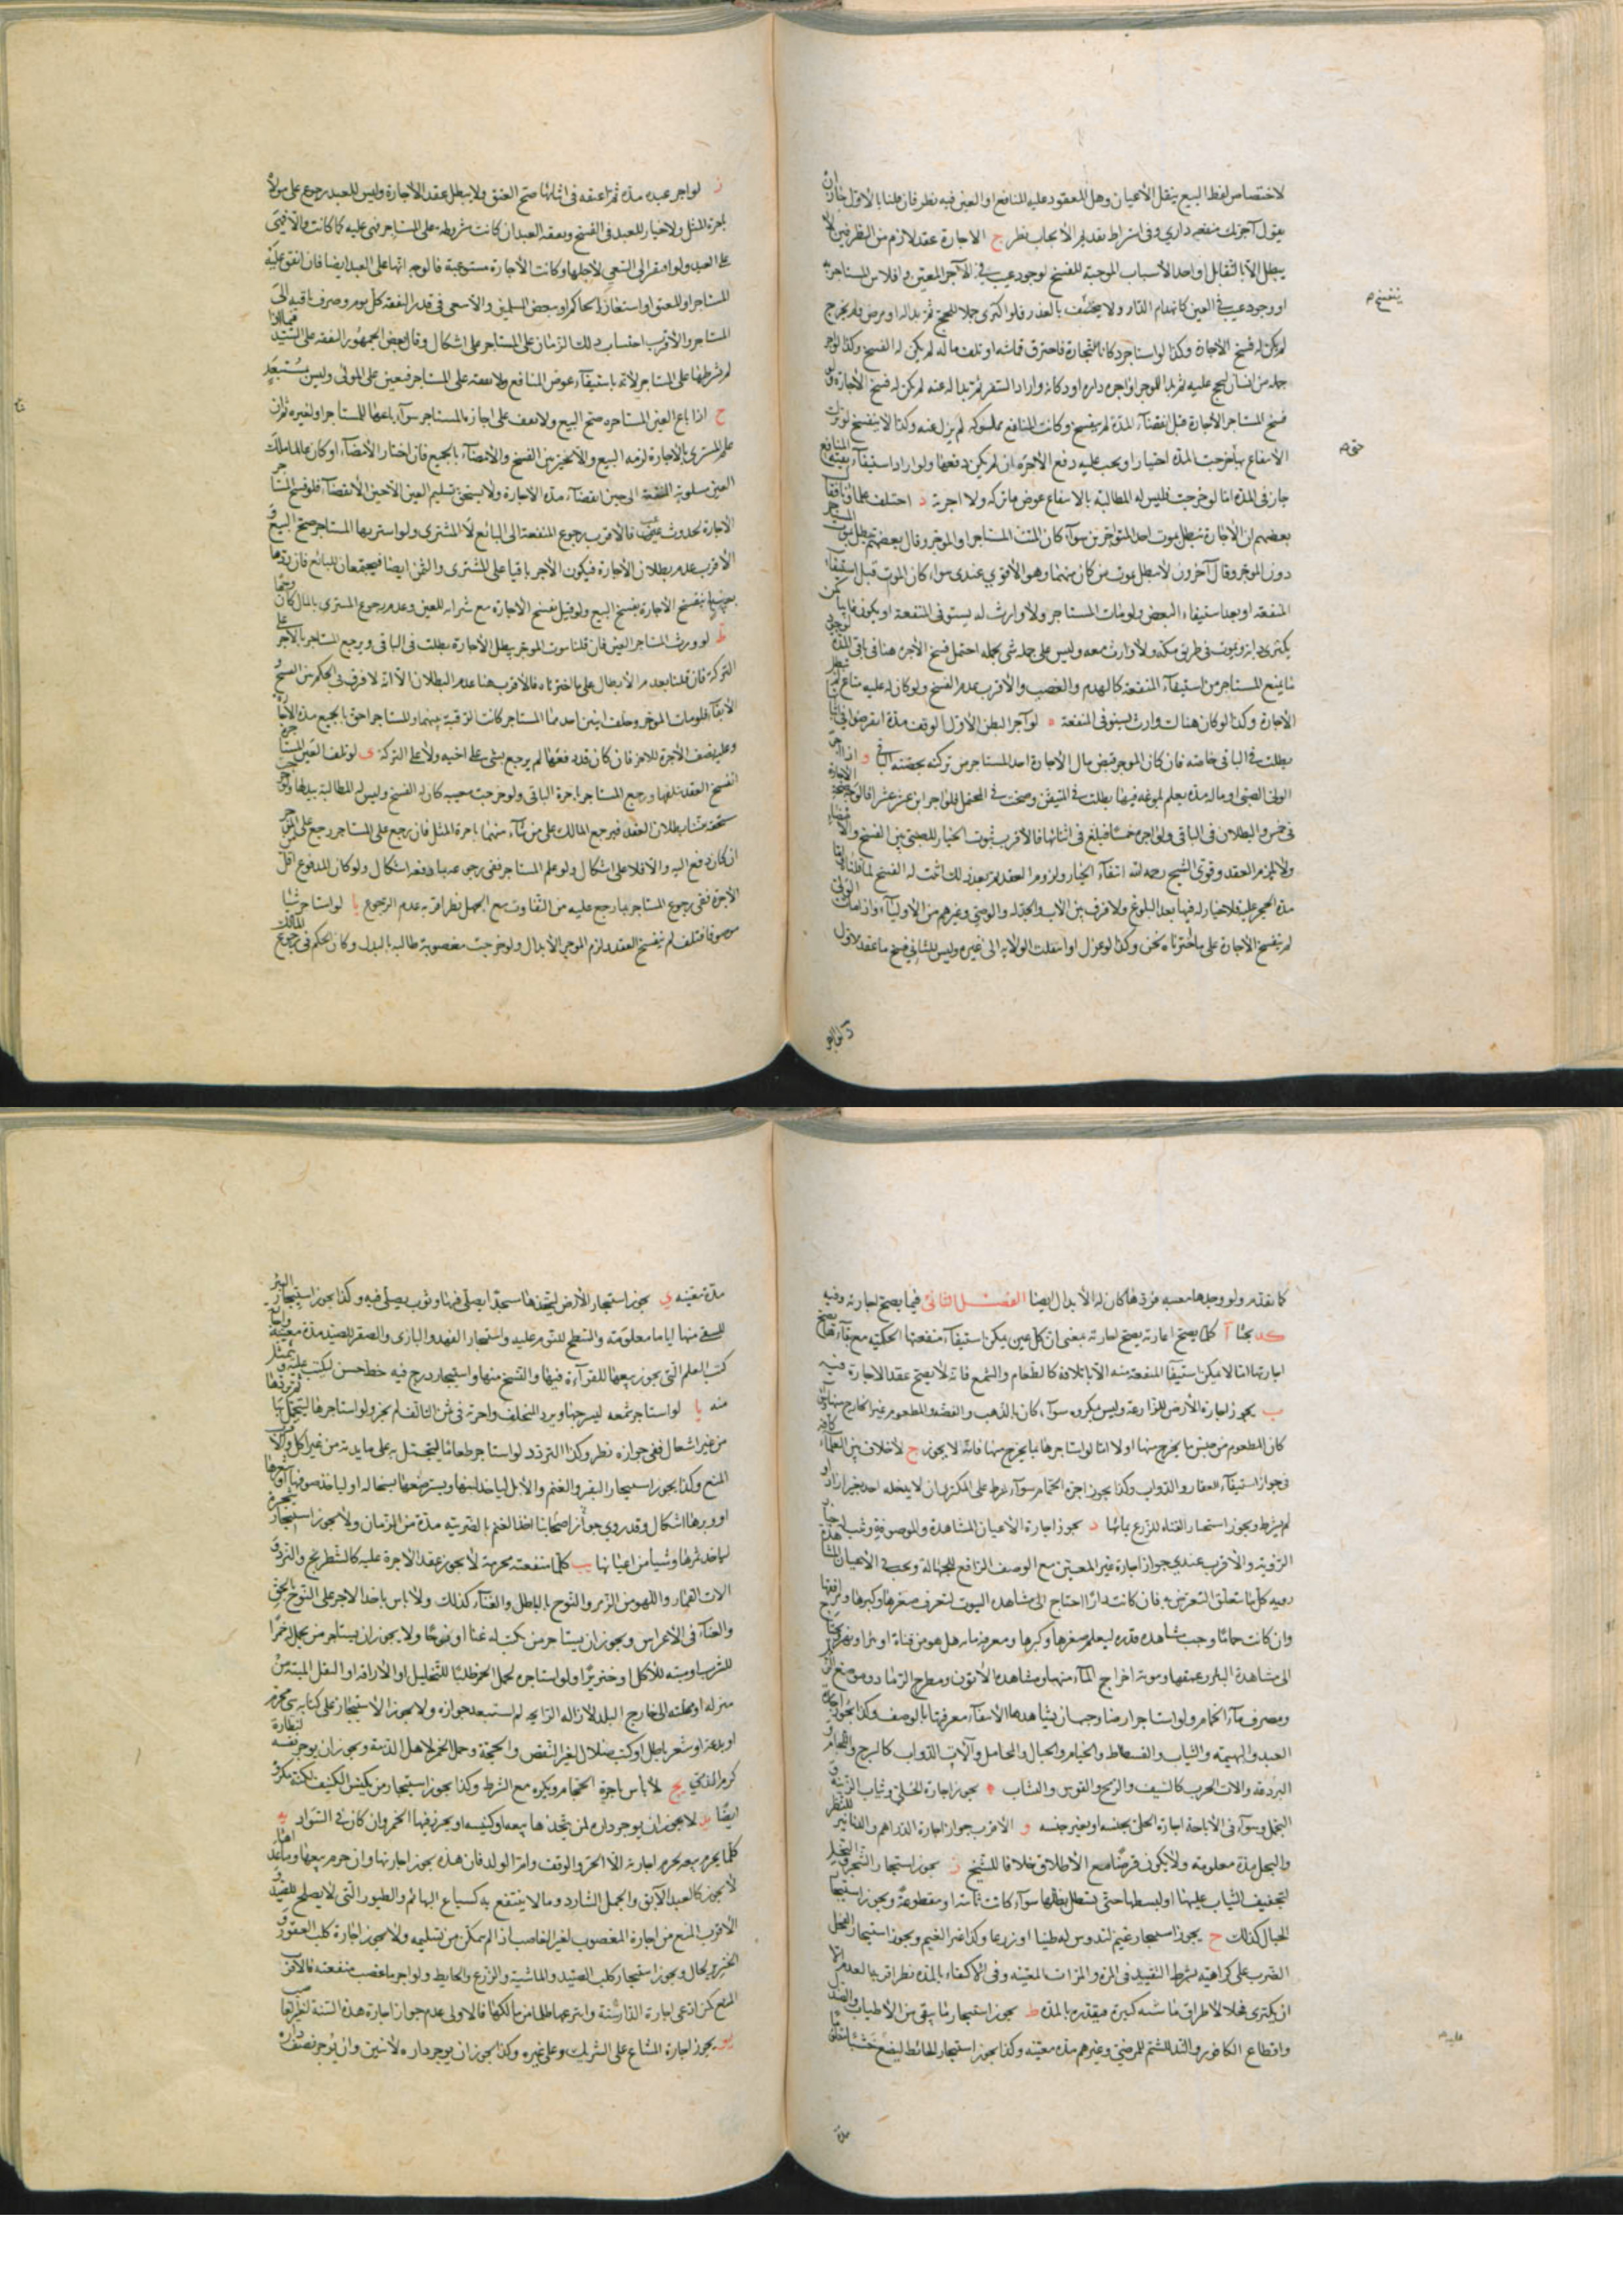 لاختصاص لفظ البيع بنقل الأعيان وهل المعقود عليه المنافع او العين فيه نظر فان قلنا بالاول جاز ان
يقول آجرتك منفعة داري وفي اشتراط تقديم الايجاب نظر ج الاجارة عقد لازم من الطرفين لا
يبطل الا بالتقايل او احد الأسباب الموجبة للفسخ لوجود عيب في الآجر المعين او افلاس المستاجر به
او وجود عيب في العين كانهدام الدار ولا ينفسخ بالعذر فلو اكترى جملا للحج ثم بدا له او مرض فلم يخرج
لم يكن له فسخ الاجارة وكذا لو استاجر دكانا للتجارة فاحترق قماشه او تلف ماله لم يكن له الفسخ وكذا لو آجر
جمله من انسان ليحج عليه ثم بدا للموجر او آجر داره او دكانه واراد السفر ثم بدا له عنه لم يكن له فسخ الأجارة ولو
فسخ المستاجر الأجارة قبل انقضاء المدة لم ينفسخ وكانت المنافع مملوكه لم يزل عنه وكذا لا ينفسخ لو ترك
الانتفاع بها خرجت المدة اختيارا ويجب عليه دفع الاجرة ان لم يكن دفعها ولو اراد استيفاء بقية المنافع
جاز في المدة اما لو خرجت فليس له المطالبة بالانتفاع عوض ما تركه ولا اجرته د اختلف علماؤنا فقال
بعضهم ان الأجارة تبطل بموت احد المتواجرين سواء كان الميت المستاجر او الموجر وقال بعضهم تبطل بموت المستاجر
دون الموجر وقال آخرون لا تبطل بموت من كان منهما وهو الأقوى عندي سواء كان الموت قبل استيفاء
المنفعة او بعد استيفاء البعض ولو مات المستاجر ولا وارث له يستوفي المنفعة او يكون غايبا كمن
يكتري دابة ويموت في طريق مكة ولا وارث معه وليس على جمله شئ يحمله احتمل فسخ الأجرة هنا في باقي المدة لوجود
ما يمنع المستاجر من استيفاء المنفعة كالهدم والغصب والأقرب عدم الفسخ ولو كان له عليه متاع لم تبطل
الاجارة وكذا لو كان هناك وارث يستوفي المنفعة ه لو آجر البطن الأول الوقف مدة انقرضوا في اثنائها
بطلت في الباقي خاصة فان كان الموجر قبض مال الأجارة اخذ المستاجر من تركته بحصته الباقي و اذا آجر
الولي الصبي او ماله مدة يعلم بلوغه فيها بطلت في المتيقن وصحت في المحتمل فلو آجر ابن عشر عشرا فالوجه صحة الاجارة
في خمس والبطلان في الباقي ولو آجره خمسا فبلغ في اثنائها فالأقرب ثبوت الخيار للصبي بين الفسخ والامضاء
ولا يلزم العقد وقوى الشيخ رحمه الله انتفاء الخيار ولزوم العقد
مدة الحجر عليه فلا خيار له فيها بعد البلوغ ولا فرق بين الاب والجد له والوصي وغيرهم من الأولياء واذا مات الولي
لم ينفسخ الأجارة على ما اخترناه نحن وكذا لو عزل او انتقلت الولاية الى غيره وليس للثاني فسخ ما عقده الأول
ينفسخ
ز لو اجر عبده مدة ثم اعتقه في اثنائها صح العتق ولا يبطل عقد الأجارة وليس للعبد رجوع على مولاه
باجرة المثل ولا خيار للعبد في الفسخ ونفقة العبد ان كانت مشروطة على المستاجر فهي عليه كما كانت والا فهي
على العبد ولو افتقر الى السعي لأجلها وكانت الأجارة مستوعبة فالوجه انها على العبد ايضا فان انفق عليه
المستاجر او المعتق او استعان بالحاكم او ببعض المسلمين والا سعى في قدر النفقة كل يوم وصرف باقيه الى
المستاجر والأقرب احتساب ذلك الزمان على المستاجر على اشكال وقال بعض الجمهور النفقة على السيد فيما اذا
لم يشرطها على المستاجر لأنه باستيفاء عوض المنافع ولا نفقة على المستاجر فتعين على المولى وليس بمستبعد
ح اذا باع العين المستاجرة صح البيع ولا تقف على اجازة المستاجر سواء باعها للمستاجر او لغيره ثم ان
علم المشتري بالاجارة لزمه البيع والا تخير بين الفسخ والأمضاء بالجميع فان اختار الأمضاء او كان عالما ملك
العين مسلوبة المنفعة الى حين انقضاء مدة الاجارة ولا يستحق تسليم العين الا حين الانقضاء فلو فسخ المستاجر
الاجارة لحدوث عيب فالاقرب رجوع المنفعة الى البائع لا المشتري ولو اشتراها المستاجر صح البيع و
الأقرب عدم بطلان الأجارة فيكون الأجر باقيا على المشتري والثمن ايضا فيجتمعان للبائع فان ردها
بعيب لم ينفسخ الأجارة بفسخ البيع ولو قيل بفسخ الأجارة مع شرائه للعين وعدم رجوع المشتري بالمال كان وجها
ط لو ورث المستاجر العين فان قلنا بموت الموجر يبطل الأجارة بطلت في الباقي ويرجع المستاجر بالأجر على
التركة فان قلنا بعدم الأبطال على ما اخترناه فالأقرب هنا عدم البطلان الا انه لا فرق في الحكم بين الفسخ و
الأبقاء فلو مات الموجر وخلف ابنين احدهما المستاجر كانت الرقبة بينهما والمستاجر احق بالجميع مدة الأجارة
وعليه نصف الأجرة للاخر فان كان قد دفعها لم يرجع بشئ على اخيه ولا على التركة ى لو تلف العين المستاجرة
انفسخ العقد بتلفها ورجع المستاجر باجرة الباقي ولو خرجت معيبه كان له الفسخ وليس له المطالبة ببدلها ولو خرجت
مستحقة بطلان العقد فيرجع المالك على من شاء منهما باجرة المثل فان رجع على المستاجر رجع على الموجر
ان كان دفع اليه والا فلا على اشكال ولو علم المستاجر ففي رجوعه بما دفعه اشكال ولو كان المدفوع اقل
الأجرة ففي رجوع المستاجر بما رجع عليه من التفاوت مع الجهل نظر اقربه عدم الرجوع يا لو استاجر شيئا
موصوفا فتلف لم ينفسخ العقد ولزم الموجر الأبدال ولو خرجت مغصوبة طالبه بالبدل وكان الحكم في رجوع المالك
كما تقدم ولو وجدها معيبه فردها كان له الأبدال ايضا الفصل الثاني فيما يصح اجارته وفيه
كد بحثا آ كلما يصح اعارته يصح اجارته بمعنى ان كل عين يمكن استيفاء منفعتها الحكمية مع بقائها يصح
اجارتها اما ما لا يمكن استيفاء المنفعة منه الا باتلافه كالطعام والشمع فانه لا يصح عقد الاجارة فيه
ب يجوز اجارة الأرض للزراعة وليس بمكروه سواء كان بالذهب والفضة والمطعوم غير الخارج منها سواء
كان المطعوم من جنس ما يخرج منها او لا اما لو استاجرها بما يخرج منها فانه لا يجوز ج لا خلاف بين العلماء كافة
في جواز استيجار العقار والدواب وكذا يجوز اجرة الحمام سواء شرط على المكتري ان لا يدخله احد بغير ازار او
لم يشرط ويجوز استيجار القناة للزرع بمائها د يجوز اجارة الأعيان المشاهدة والموصوفة وثبت له خيار
الرؤية والأقرب عندي جواز اجارة غير المعين مع الوصف الرافع للجهالة ويجب في الأعيان المشاهدة
رؤية كل ما تتعلق الغرض به فان كانت دارا احتاج الى مشاهدة البيوت لتعرف صغرها وكبرها ومرافقها
وان كانت حماما وجب مشاهدة قدره ليعلم صغرها وكبرها ومعرفة مائه هل هو من قناة او بئر
الى مشاهدة البئر وعمقها ومونة اخراج الماء منها ومشاهدة الأتون ومطرح الرماد وموضع الزبل
ومصرف ماء الحمام ولو استاجر ارضا وجب ان يشاهدها لانتفاء معرفتها بالوصف وكذا يجوز اجارة
العبد والبهيمة والثياب والفسطاط والخيام والحبال والمحامل وآلات الدواب كالسرج واللجام و
البردعة والات الحرب كالسيف والرمح والقوس والنشاب ه يجوز اجارة الحلي وثياب الزينة و
التجمل وسواء في الأباحة اجارة الحلي بجنسه او بغير جنسه و الاقرب جواز اجارة الدراهم والدنانير للنظر
والتجمل مدة معلومة ولا يكون قرضا مع الأطلاق خلافا للشيخ ز يجوز استيجار الشجر والنخيل
لتجفيف الثياب عليها او لبسطها حتى يستظل بظلها سواء كانت ثابتة او مقطوعة ويجوز استيجار
الحبال كذلك ح يجوز استيجار غنم لتدوس له طينا او زرعا وكذا غير الغنم ويجوز استيجار الفحل
الضرب على كراهية بشرط التقييد في المرة والمرات المعينة وفي الاكتفاء بالمدة نظر اقربه العدم الا
ان يكتري فحلا لأطراق ماشية كبيرة فيقدره بالمدة ط يجوز استيجار ما يبقى من الأطياب والصندل
واقطاع الكافور والند للشم للمرضى وغيرهم مدة معينة وكذا يجوز استيجار الحائط ليضع خشبا
مدة
مدة معينة ى يجوز استيجار الأرض ليتخذها مسجدا يصلى فيها وثوب يصلى فيه وكذا يجوز استيجار البئر
ليستقي منها اياما معلومة والسطح للنوم عليه واستيجار الفهد والبازى والصقر للصيد مدة معينة
كتب العلم التي يجوز بيعها للقرآءة فيها والنسخ منها واستيجار درج فيه خط حسن ليكتب عليه
منه يا لو استاجر شمعه ليسرجها ويرد المتخلف واجرة في ثمن التالف لم يجز ولو استاجرها ليتجمل بها
من غير اشعال ففي جوازه نظر وكذا التردد لو استاجر طعاما ليتجمل به على مايدته من غير اكل والاقرب
المنع وكذا يجوز استيجار البقر والغنم والأبل لياخذ لبنها ويسترضعها لسخاله او لياخذ صوفها او شعرها
او وبرها اشكال وقد روى جوازه اصحابنا اخذ الغنم بالضريبة مدة من الزمان ولا يجوز استيجار شجرة
لياخذ ثمرها وشيأ من اعيانها يب كلما منفعته محرمة لا يجوز عقد الأجرة عليه كالشطرنج والنرد و
الات القمار واللهو من الزمر والنوح بالباطل والغناء كذلك ولا باس باخذ الاجر على النوح بالحق
والغناء في الأعراس ويجوز ان يستاجر من يكتب له غناء او نوحا ولا يجوز ان يستاجر من يحمل له خمرا
للشرب او ميته للأكل او خنزيرا ولو استاجره لحمل الخمر طلبا للتخليل او الأراقة او لنقل الميتة من
منزله او محلته الى خارج البلد لأزالة الرايحه لم استبعد جوازه ولا يجوز الاستيجار على كتابه شئ محرم
او بدعة او شعر باطل او كتب ضلال لغير النقض والحجة وحمل الخمر لأهل الذمة ويجوز ان يوجر نفسه لنظارة
كرم الذمي يج لا بأس باجرة الحجام ويكره مع الشرط وكذا يجوز استيجار من يكنس الكنيف لكنه مكروه
ايضا يد لا يجوز ان يوجر داره لمن يتخذها بيعه او كنيسه او يحرز فيها الخمر وان كان في السواد يه
كلما يحرم بيعه يحرم اجارته الا الحر والوقف وام الولد فان هذه يجوز اجارتها وان حرم بيعها وما عداها
لا يجوز كالعبد الآبق والجمل الشارد وما لا ينتفع به كسباع البهائم والطيور التي لا يصلح للصيد و
الأقرب المنع من اجارة المغصوب لغير الغاصب اذا لم يتمكن من تسليمه ولا يجوز اجارة كلب العقور و
الخنزير بحال ويجوز استيجار كلب الصيد والماشية والزرع والحايط ولو اجر ما غصب منفعته فالأقرب
المنع كمن ادعى اجارة الدار سنة وانتزعها ظلما من مالكها فالاولى عدم جواز اجارة هذه السنة
يو يجوز اجارة المشاع على الشريك وعلى غيره وكذا يجوز ان يوجر داره لاثنين وان يوجر نصف داره